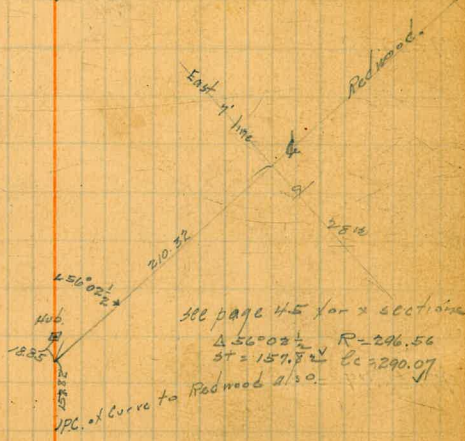 Redwood.
East 7' line
℄
9
28 18
210.32
∠56°02½
Hub.
18.85
157.82
see page 45 for x sections
Δ 56°02½ R=296.56
ST = 157.82 Lc = 290.07
P.C. of Curve to Redwood also.